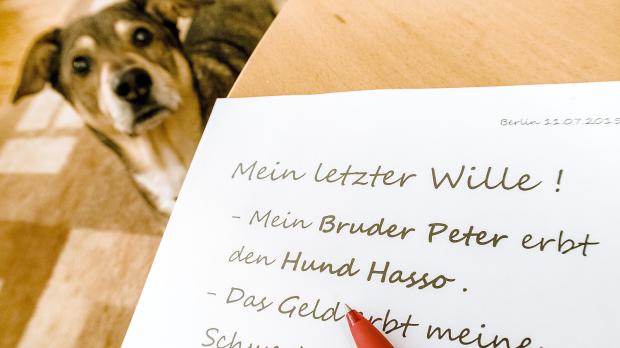 Berlin 11.07.2015
Mein letzter Wille !
- Mein Bruder Peter erbt
den Hund Hasso .
- Das Geld erbt meine